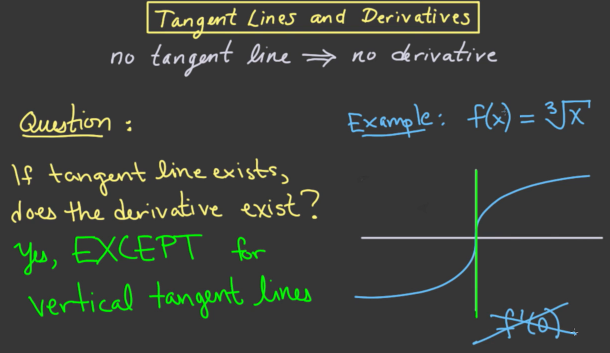 Tangent Lines and Derivatives
no tangent line ⇒ no derivative
Question:
If tangent line exists,
does the derivative exist?
Yes, EXCEPT for
vertical tangent lines
Example: f(x) = ∛x
f'(0)